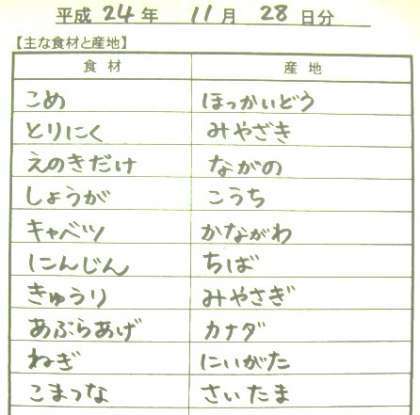 平成 24 年 11 月 28 日分
【主な食材と産地】
食材 産地
こめ ほっかいどう
とりにく みやざき
えのきだけ ながの
しょうが こうち
キャベツ かながわ
にんじん ちば
きゅうり みやさぎ
あぶらあげ カナダ
ねぎ にいがた
こまつな さいたま